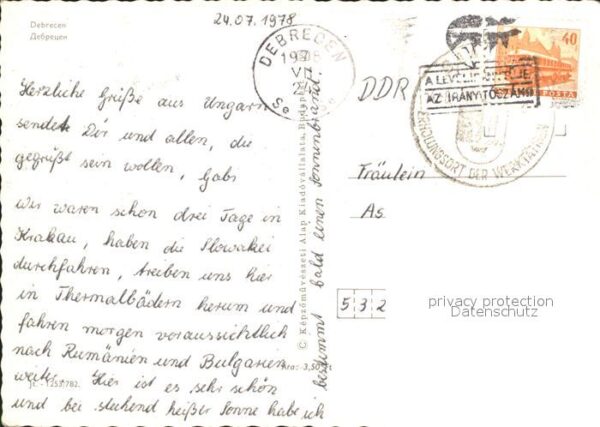 24.07.1978
Debrecen
Дебрецен
DEBRECEN
1978
VII
24
40
POSTA
A LEVÉL
AZ IRÁNYÍTÓSZÁM!
ERHOLUNGSORT DER WERKTÄTIGEN
DDR
Herzliche Grüße aus Ungarn
sendet Dir und allen, die
gegrüßt sein wollen, Gabi
Wir waren schon drei Tage in
Krakau, haben die Slowakei
durchfahren, treiben uns hier
in Thermalbädern herum und
fahren morgen voraussichtlich
nach Rumänien und Bulgarien
weiter. Hier ist es sehr schön
und bei stechend heißer Sonne habe ich
bestimmt bald einen Sonnenbrand!
C Képzőművészeti Alap Kiadóvállalata, Budapest
Ára: 3,50
1253.782.
Fräulein
As
532
privacy protection
Datenschutz